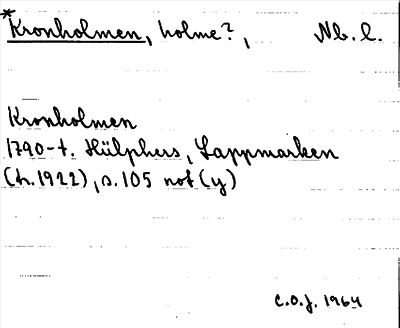 *Kronholmen, holme?, Nb. l.
Kronholmen
1790-t. Hülphers, Lappmarken
(tr. 1922), s. 105 not (y)
C.O.J. 1964